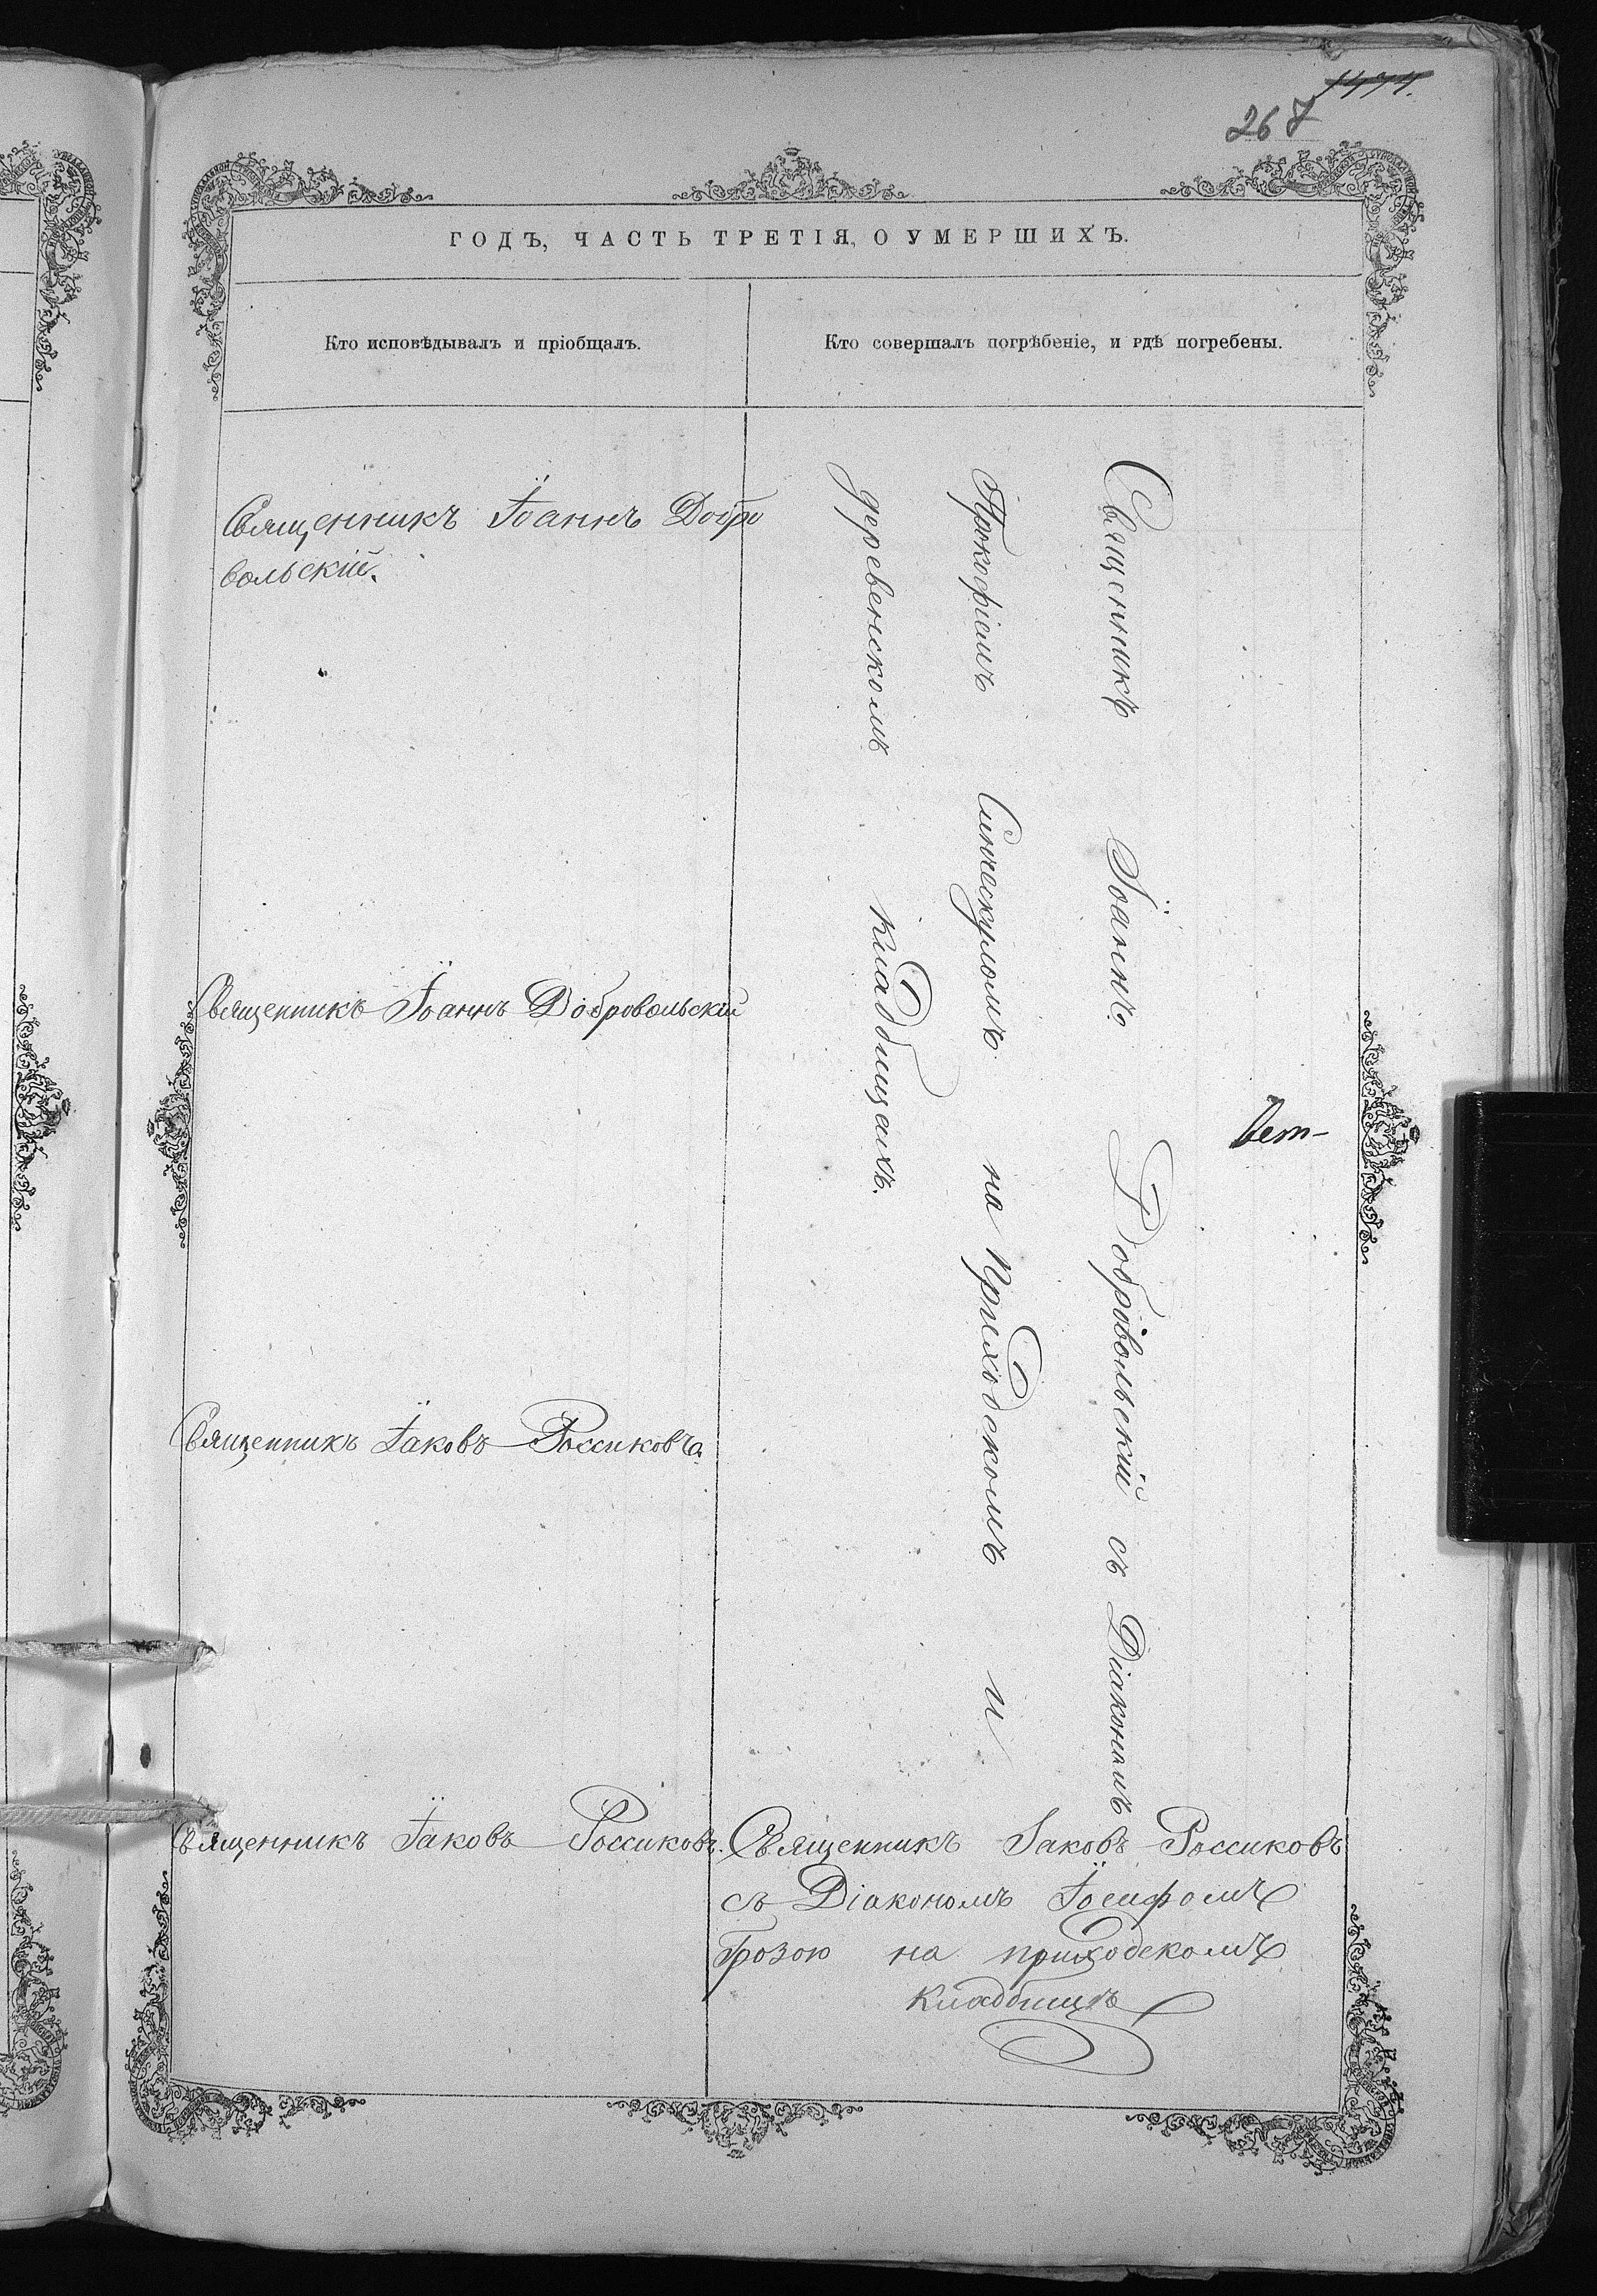 267
ГОДЪ, ЧАСТЬ ТРЕТІЯ, О УМЕРШИХЪ.
Кто исповѣдывалъ и пріобщалъ.
Кто совершалъ погрѣбеніе, и гдѣ погребены.
Священникъ Іоаннъ Добро
вольскій.
Священникъ Іоаннъ Добровольскій
Священникъ Іаковъ Россиковъ
Священникъ Іаковъ Россиковъ.
Священникъ Іоаннъ Добровольскій съ Діакономъ
Прокофіемъ на Приходскомъ и
деревенскомъ кладбищахъ.
Священникъ Іаковъ Россиковъ
съ Діакономъ Іосифомъ
Грозою на приходскомъ
кладбищѣ